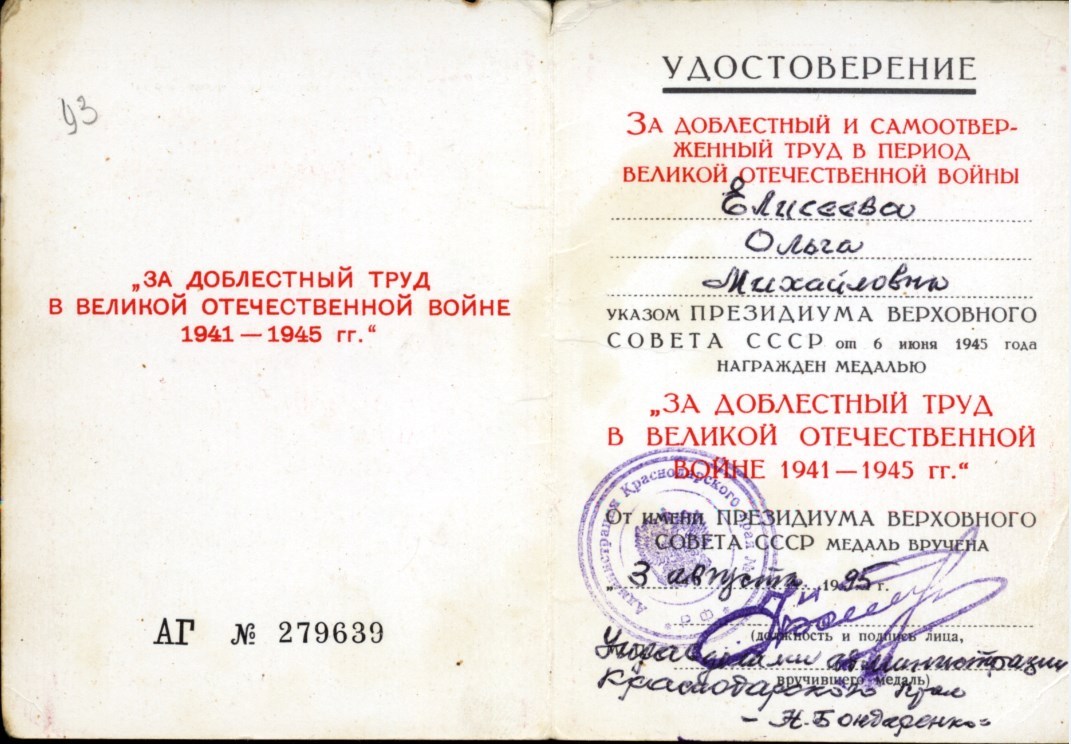 93
„ЗА ДОБЛЕСТНЫЙ ТРУД
В ВЕЛИКОЙ ОТЕЧЕСТВЕННОЙ ВОЙНЕ
1941 — 1945 гг.“
АГ № 279639
УДОСТОВЕРЕНИЕ
ЗА ДОБЛЕСТНЫЙ И САМООТВЕР-
ЖЕННЫЙ ТРУД В ПЕРИОД
ВЕЛИКОЙ ОТЕЧЕСТВЕННОЙ ВОЙНЫ
Елисеева
Ольга
Михайловна
УКАЗОМ ПРЕЗИДИУМА ВЕРХОВНОГО
СОВЕТА СССР от 6 июня 1945 года
НАГРАЖДЕН МЕДАЛЬЮ
„ЗА ДОБЛЕСТНЫЙ ТРУД
В ВЕЛИКОЙ ОТЕЧЕСТВЕННОЙ
ВОЙНЕ 1941 — 1945 гг.“
ОТ ИМЕНИ ПРЕЗИДИУМА ВЕРХОВНОГО
СОВЕТА СССР МЕДАЛЬ ВРУЧЕНА
„3 августа 1995 г.
Администрация Краснодарского края
(должность и подпись лица,
делами администрации
вручившего медаль)
Краснодарского края
- Н. Бондаренко -